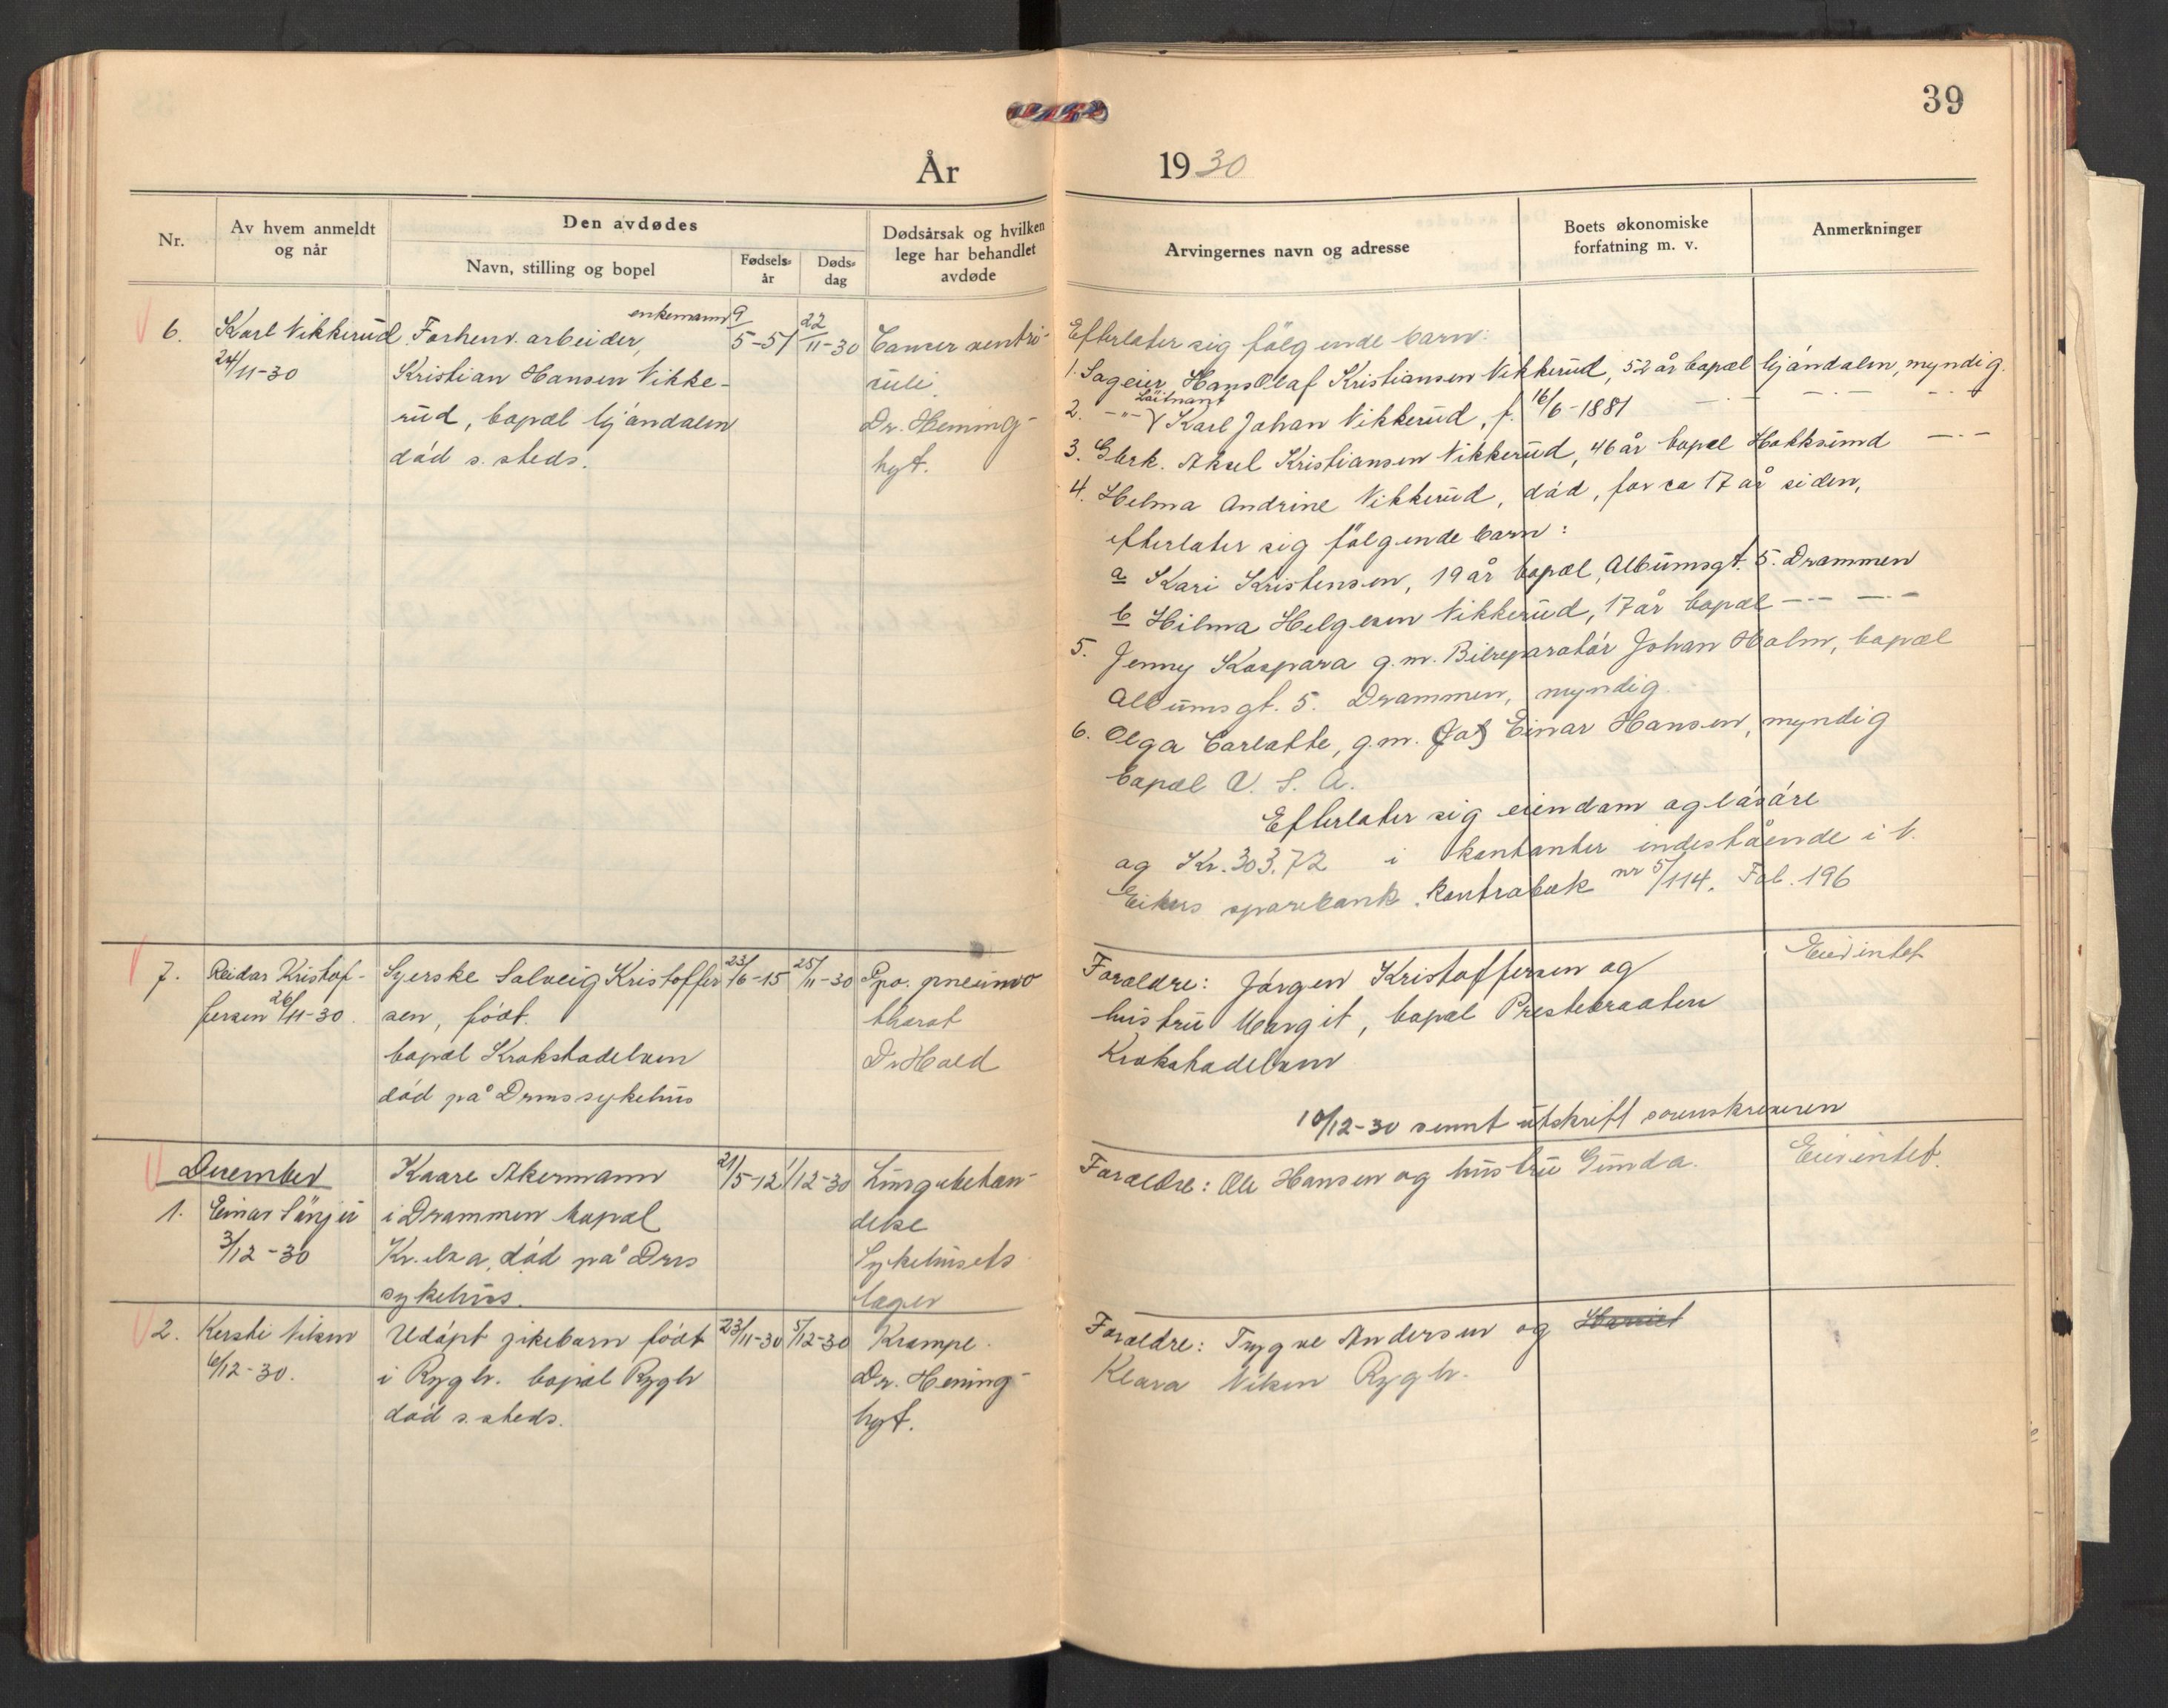 39
År 1930
Nr.
Av hvem anmeldt
og når
Den avdødes
Navn, stilling og bopel
Fødsels-
år
Døds-
dag
Dødsårsak og hvilken
lege har behandlet
avdøde
Arvingernes navn og adresse
Boets økonomiske
forfatning m. v.
Anmerkninger
6.
Karl Vikkerud
24/11-30
enkemann
Forhenv. arbeider,
Kristian Hansen Vikke-
rud, bopæl Mjøndalen
død s. steds.
9/5-51
22/11-30
Cancer ventri-
culi.
Dr. Heming-
hyt.
Efterlater sig følgende barn:
1. Sageier Hans Olaf Kristiansen Vikkerud, 52 år bopæl Mjøndalen, myndig.
2. -"- Løitnant Karl Johan Vikkerud, f. 16/6-1881 -"- -"- -"-
3. Gbrk. Aksel Kristiansen Vikkerud, 46 år bopæl Hokksund -"-
4. Helma Andrine Vikkerud, død, for ca 17 år siden,
efterlater sig følgende barn:
a Kari Kristensen, 19 år bopæl, Albumsgt. 5. Drammen
b Hilma Helgesen Vikkerud, 17 år bopæl -"- -"-
5. Jenny Kaspara g.m. Bilreparatør Johan Holm, bopæl
Albumsgt. 5. Drammen, myndig.
6. Olga Carlotte, g.m. Einar Hansen, myndig
bopæl U. S. A.
Efterlater sig eiendom og løsøre
og Kr. 303.72 i kontanter indestående i N.
Eikers sparebank. Kontrabok nr 5/114. Fol. 196
7.
Reidar Kristof-
fersen 26/11-30.
Syerske Solveig Kristoffer
sen, født.
bopæl Krokstadelven
død på Drms sykehus
23/6-15
25/11-30
Spo. pneumo
thorat
Dr Hald
Foreldre: Jørgen Kristoffersen og
hustru Margit, bopæl Prestebraaten
Krokstadelven
Eier intet
10/12-30 sennt utskrift sorenskriveren
December
1.
Einar Lünju
3/12-30
Kaare Akermann
i Drammen bopæl
Kr. elva, død på Drs
sykehus.
21/5-12
1/12-30
Lungebetæn-
delse
Sykehusets
læger
Foreldre: Ole Hansen og hustru Gunda.
Eier intet.
2.
Kersti Viken
6/12-30.
Udøpt pikebarn født
i Rygh. bopæl Rygh
død s. steds.
23/11-30
5/12-30
Krampe.
Dr. Hening-
hyt.
Foreldre: Trygve Andersen og Harriet
Klara Viken Rygh.